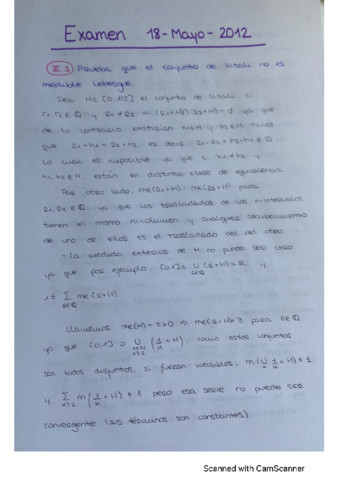 Examen 18-Mayo-2012
I.1 Prueba que el conjunto de Vitali no es
medible Lebesgue.
Sea H⊂[0,1/2] el conjunto de Vitali, si
r₁,r₂∈Q y r₁≠r₂ ⇒ (r₁+H)∩(r₂+H)=∅ ya que
de lo contrario existirían h₁∈H y h₂∈H tales
que r₁+h₁ = r₂+h₂, es decir,
lo cual es imposible ya que si h₁≠h₂ y
h₁,h₂∈H, están en distinta clase de equivalencia.
Por otro lado, me(r₁+H)=me(r₂+H) para
r₁,r₂∈Q, ya que los trasladados de los n-intervalos
tienen el mismo n-volumen y cualquier recubrimiento
de uno de ellos es el trasladado del del otro.
- La medida exterior de H no puede ser cero
ya que por ejemplo, y
1≤ Σ me(r+H)
Llamemos me(H)=γ>0 ⇒ me(r+H)=γ para r∈Q
ya que [0,1] ⊃ ∪ (1/n + H) como estos conjuntos
son todos disjuntos, si fueran medibles, m(∪ 1/n + H) ≤ 1
y Σ m(1/n + H) ≤ 1 pero esa serie no puede ser
convergente (sus términos son constantes).
Scanned with CamScanner